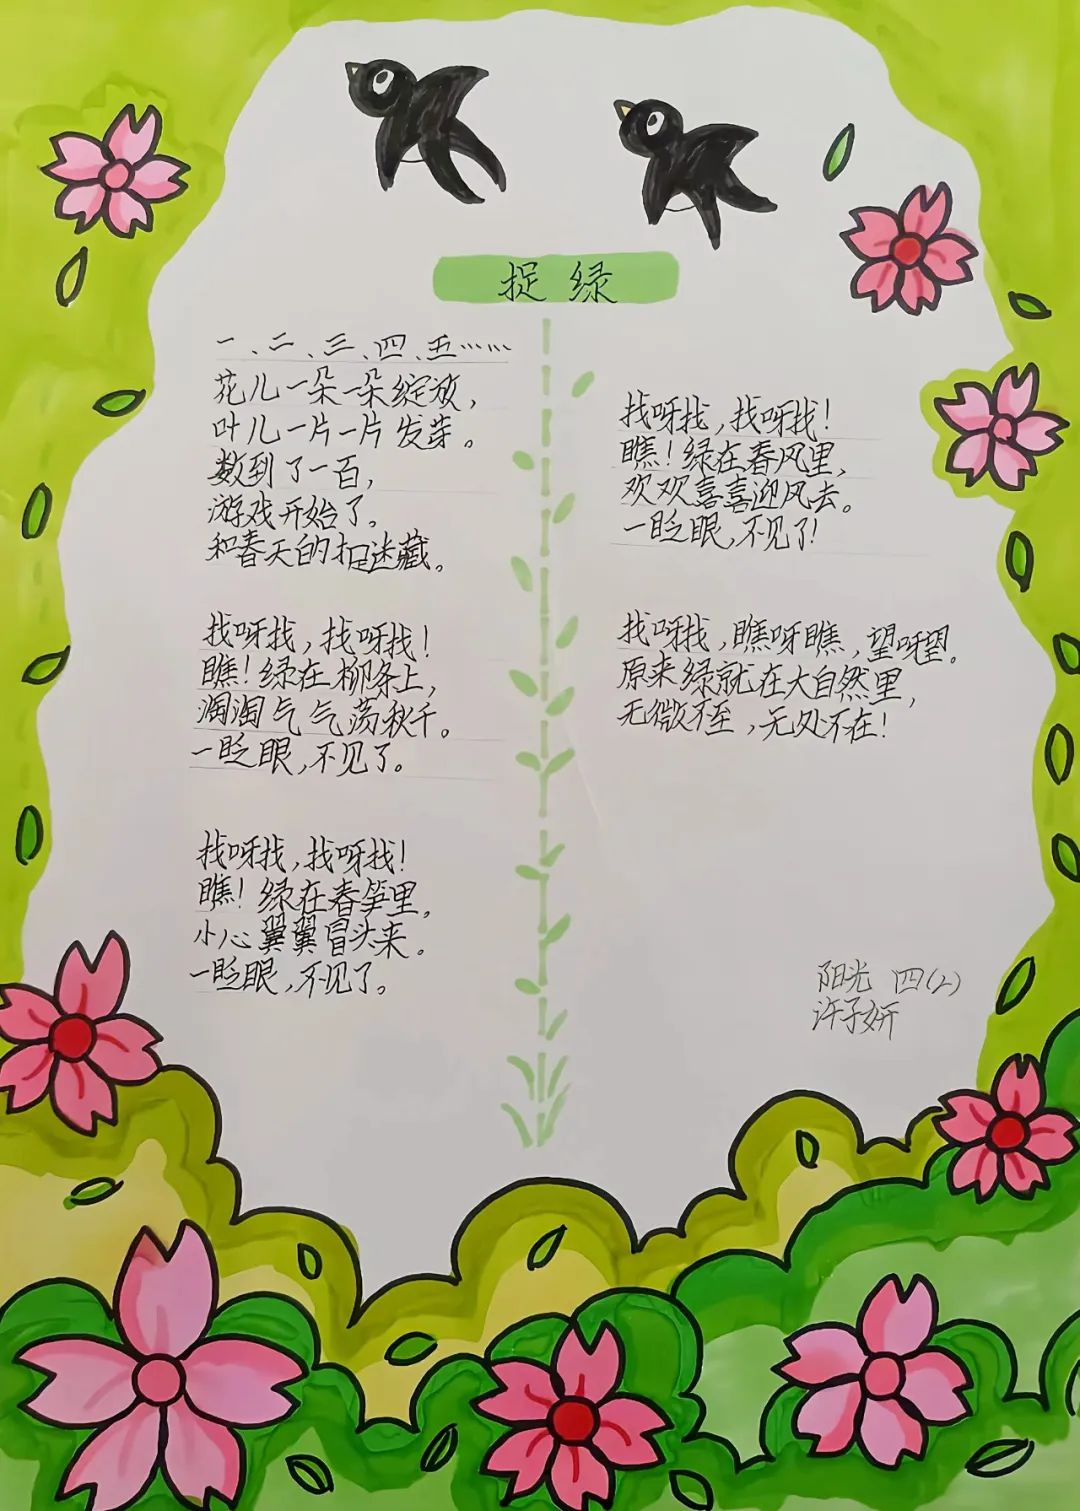 捉绿
一、二、三、四、五……
花儿一朵一朵绽放，
叶儿一片一片发芽。
数到了一百，
游戏开始了。
和春天的捉迷藏。
找呀找，找呀找！
瞧！绿在柳条上，
淘淘气气荡秋千。
一眨眼，不见了。
找呀找，找呀找！
瞧！绿在春笋里，
小心翼翼冒头来。
一眨眼，不见了。
找呀找，找呀找！
瞧！绿在春风里，
欢欢喜喜迎风去。
一眨眼，不见了！
找呀找，瞧呀瞧，望呀望。
原来绿就在大自然里，
无微不至，无处不在！
阳光 四(2)
许子妍